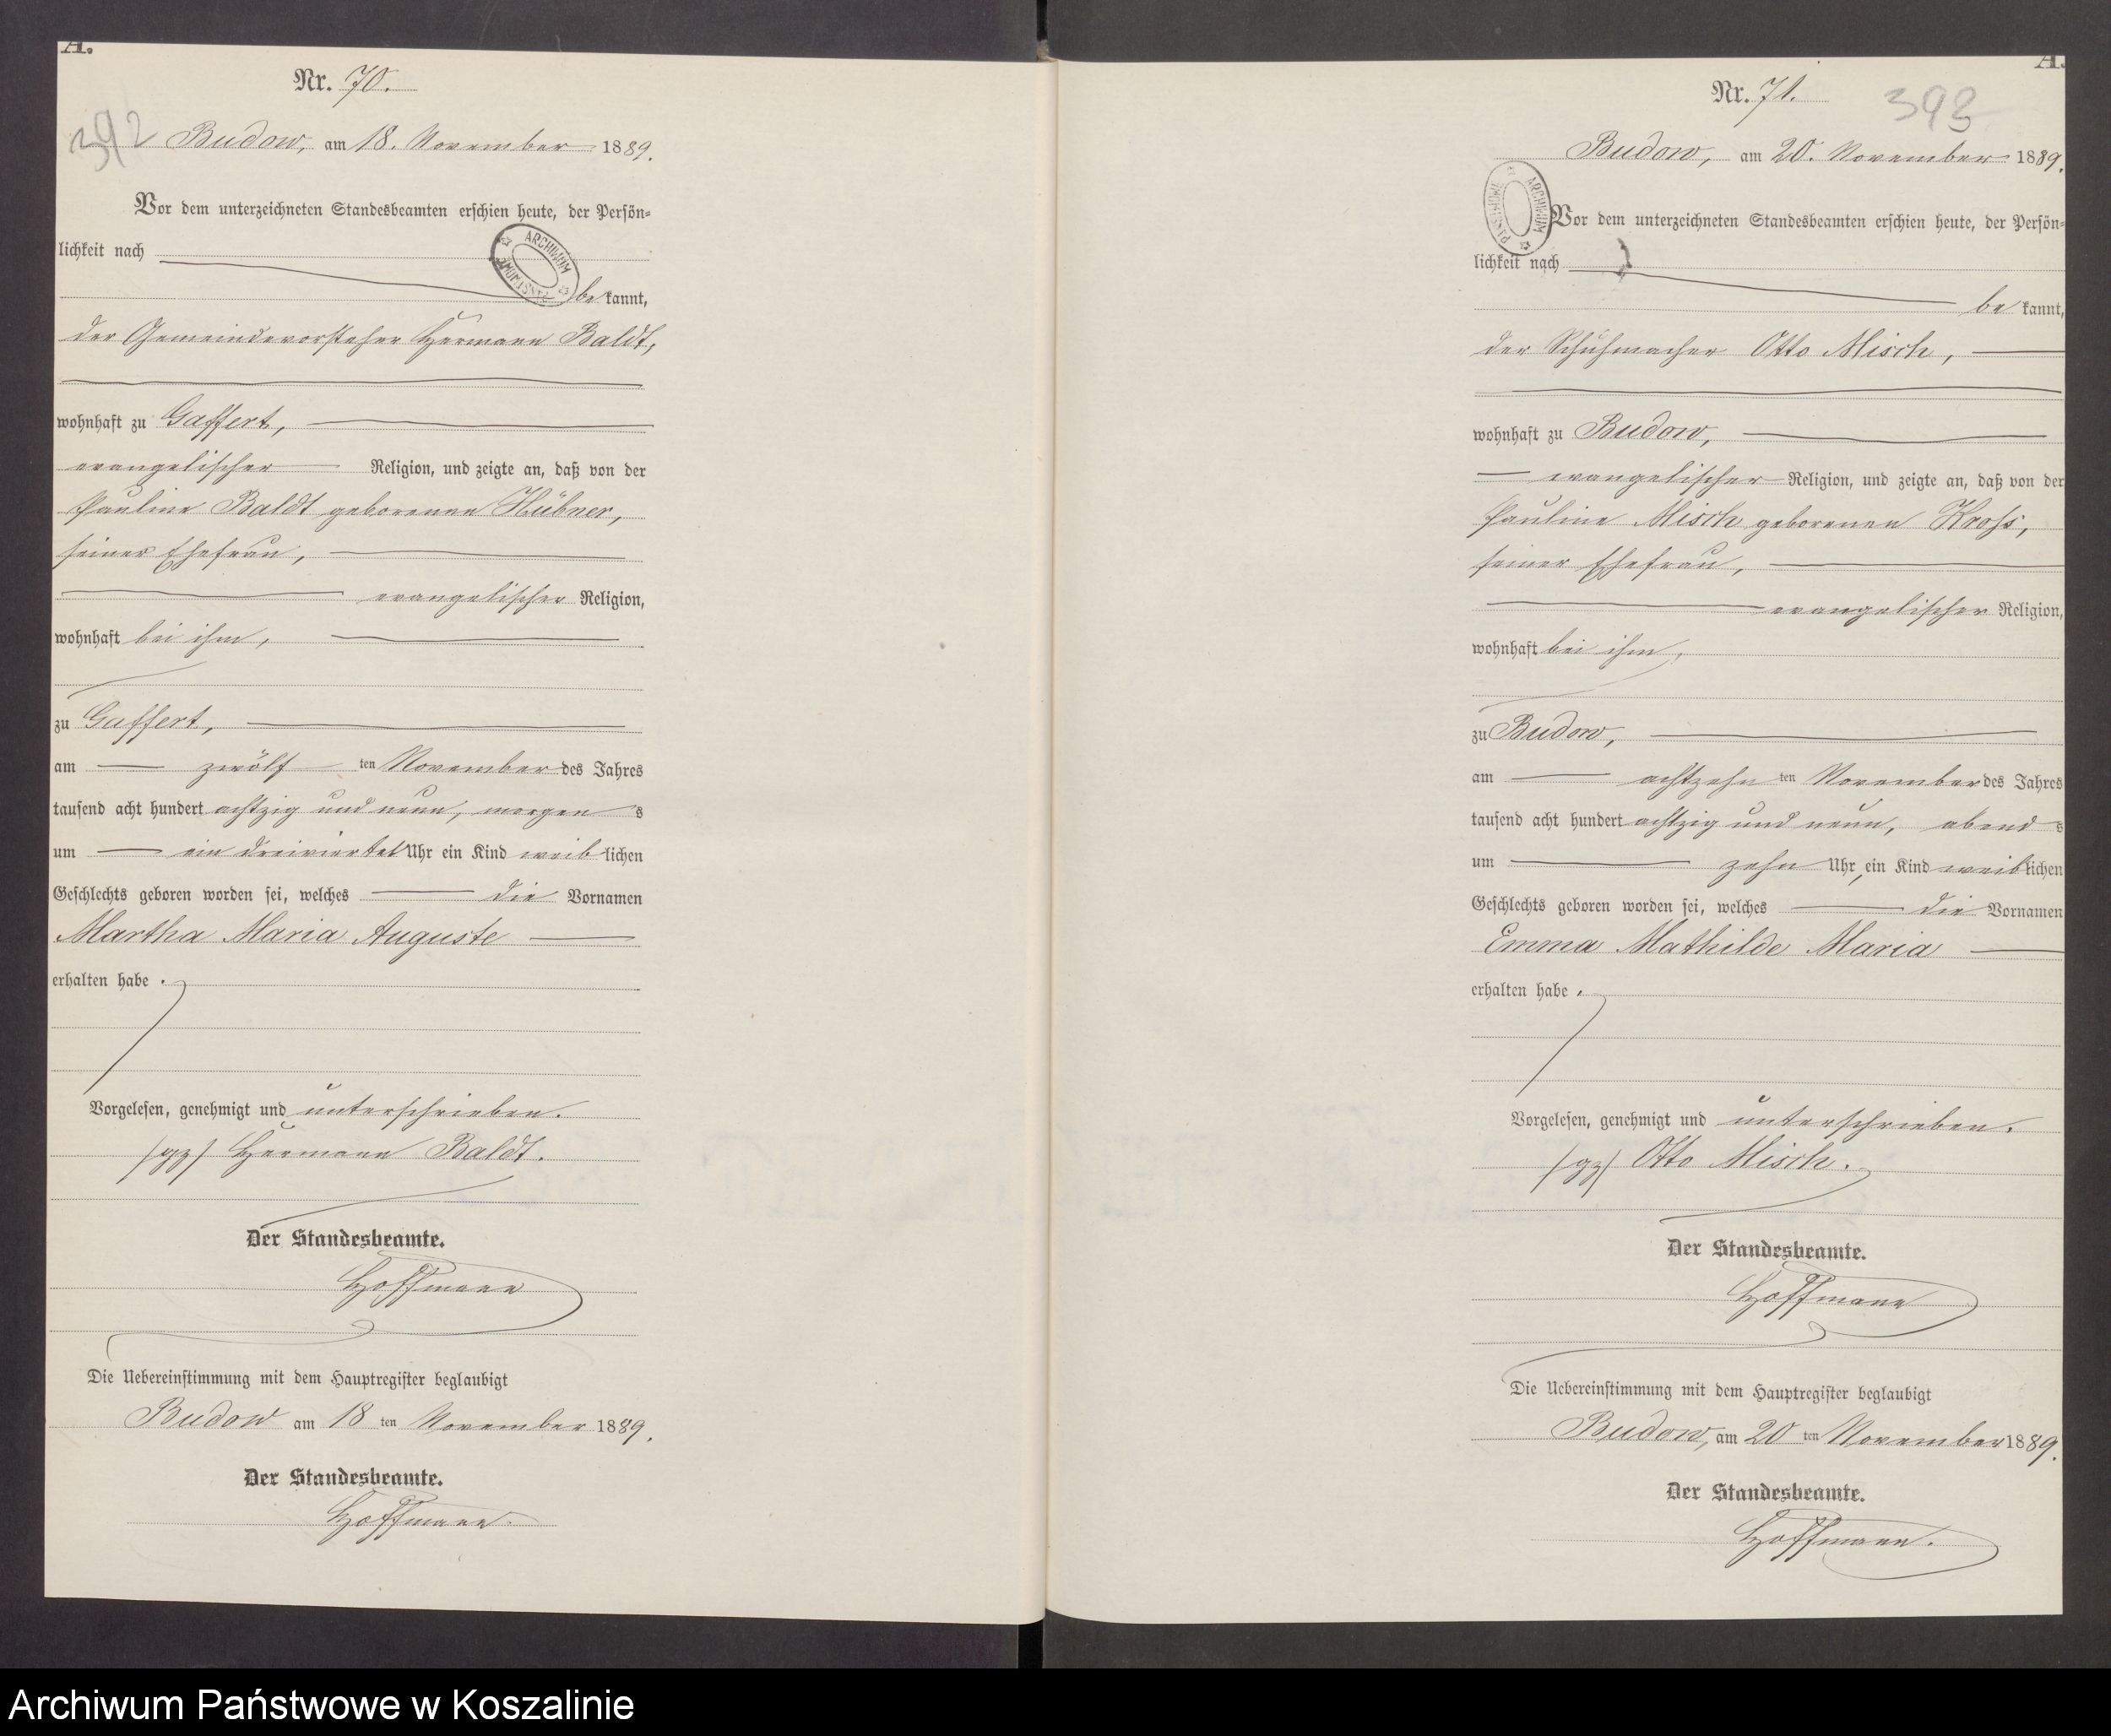 A.
Nr. 70.
392
Budow, am 18. November 1889.
Vor dem unterzeichneten Standesbeamten erschien heute, der Persön-
lichkeit nach
ARCHIWUM PAŃSTWOWE
be kannt,
der Gemeindevorsteher Hermann Baldt,
wohnhaft zu Gaffert,
evangelischer Religion, und zeigte an, daß von der
Pauline Baldt geborenen Hübner,
seiner Ehefrau,
evangelischer Religion,
wohnhaft bei ihm,
zu Gaffert,
am zwölf ten November des Jahres
tausend acht hundert achtzig und neun, morgen s
um ein dreiviertel Uhr ein Kind weib lichen
Geschlechts geboren worden sei, welches die Vornamen
Martha Maria Auguste
erhalten habe .
Vorgelesen, genehmigt und unterschrieben.
/gz/ Hermann Baldt.
Der Standesbeamte.
Hoffmann
Die Uebereinstimmung mit dem Hauptregister beglaubigt
Budow am 18 ten November 1889.
Der Standesbeamte.
Hoffmann.
A.
Nr. 71.
393
Budow, am 20. November 1889.
ARCHIWUM PAŃSTWOWE
Vor dem unterzeichneten Standesbeamten erschien heute, der Persön-
lichkeit nach
be kannt,
der Schuhmacher Otto Misch,
wohnhaft zu Budow,
evangelischer Religion, und zeigte an, daß von der
Pauline Misch geborenen Kroß,
seiner Ehefrau,
evangelischer Religion,
wohnhaft bei ihm,
zu Budow,
am achtzehn ten November des Jahres
tausend acht hundert achtzig und neun, abend s
um zehn Uhr, ein Kind weib lichen
Geschlechts geboren worden sei, welches die Vornamen
Emma Mathilde Maria
erhalten habe .
Vorgelesen, genehmigt und unterschrieben.
/gz/ Otto Misch.
Der Standesbeamte.
Hoffmann
Die Uebereinstimmung mit dem Hauptregister beglaubigt
Budow, am 20 ten November 1889.
Der Standesbeamte.
Hoffmann.
Archiwum Państwowe w Koszalinie